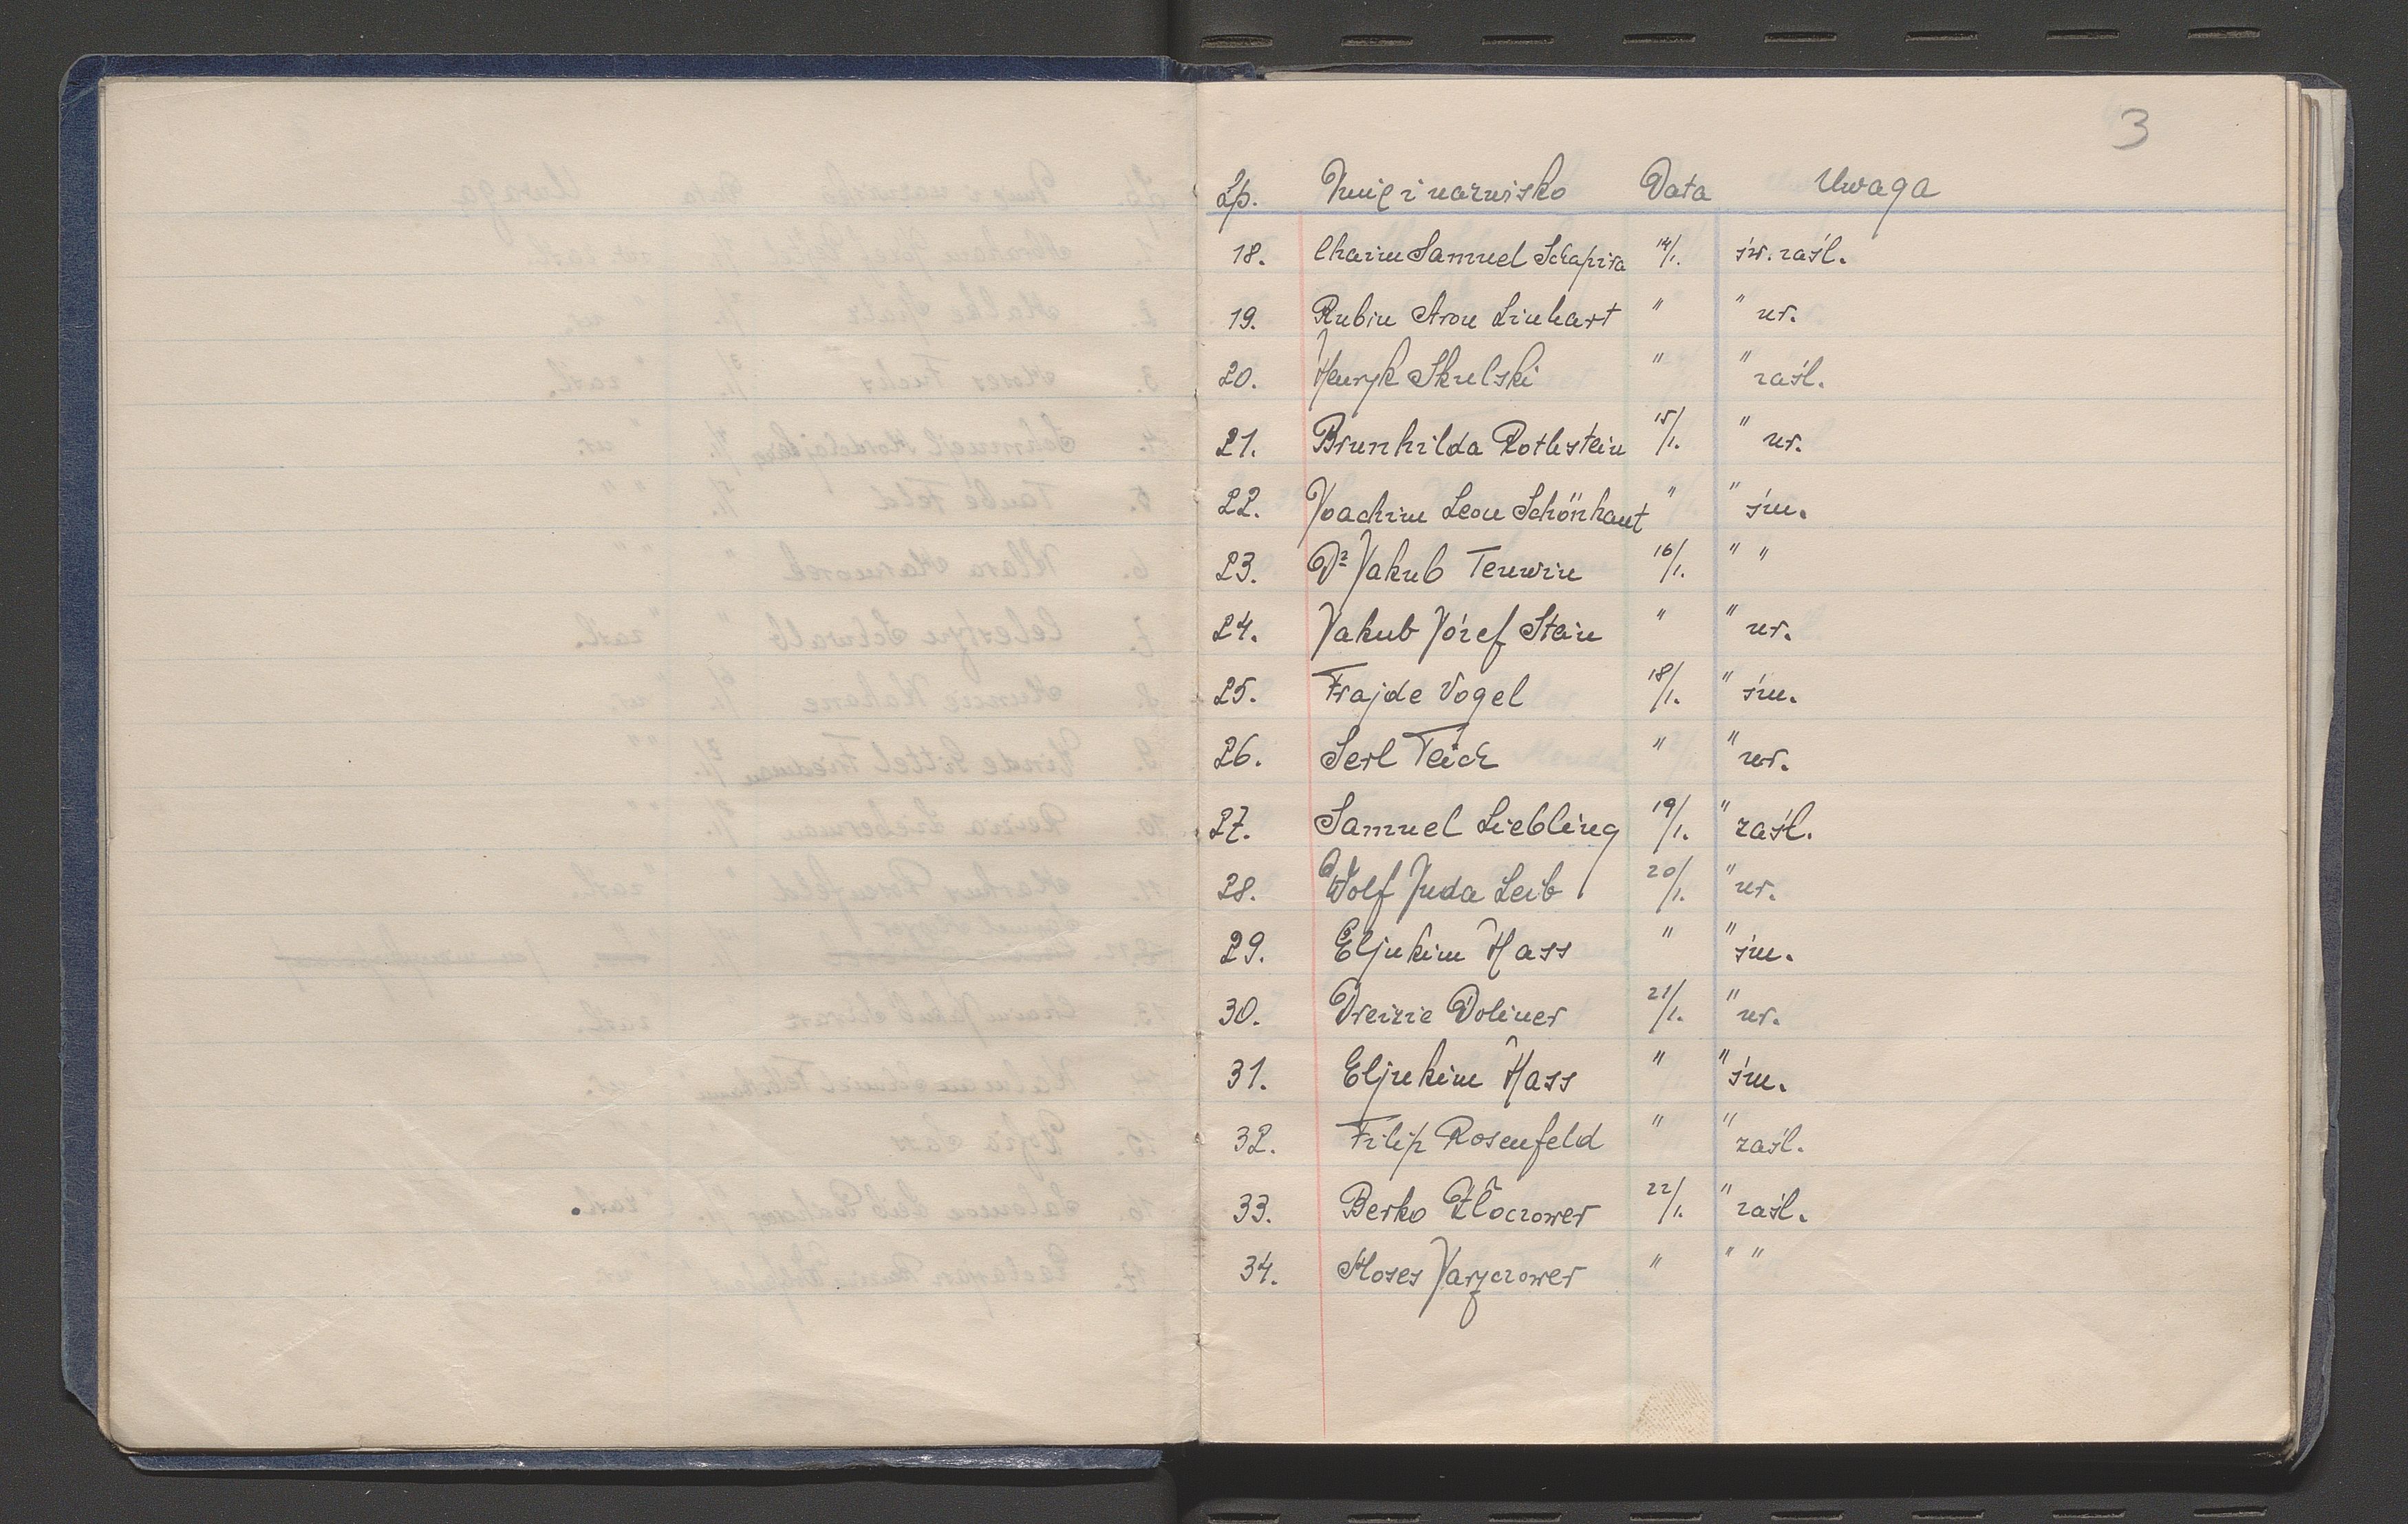 3
Lp. Imię i nazwisko Data Uwaga
18. Chaim Samuel Schapira 14/1. św. zaśl.
19. Rubin Aron Linhart " " ur.
20. Henryk Skulski " " zaśl.
21. Brunhilda Rothstein 15/1. " ur.
22. Joachim Leon Schönhaut " " śm.
23. Dr Jakub Tenwin 16/1. " "
24. Jakub Józef Stein " " ur.
25. Frajde Vogel 18/1. " śm.
26. Serl Teich " " ur.
27. Samuel Liebling 19/1. " zaśl.
28. Wolf Juda Leib 20/1. " ur.
29. Eljukim Hass " " śm.
30. Dreizie Doliner 21/1. " ur.
31. Eljukim Hass " " śm.
32. Filip Rosenfeld " " zaśl.
33. Berko Złoczower 22/1. " zaśl.
34. Moses Jaryczower " " "